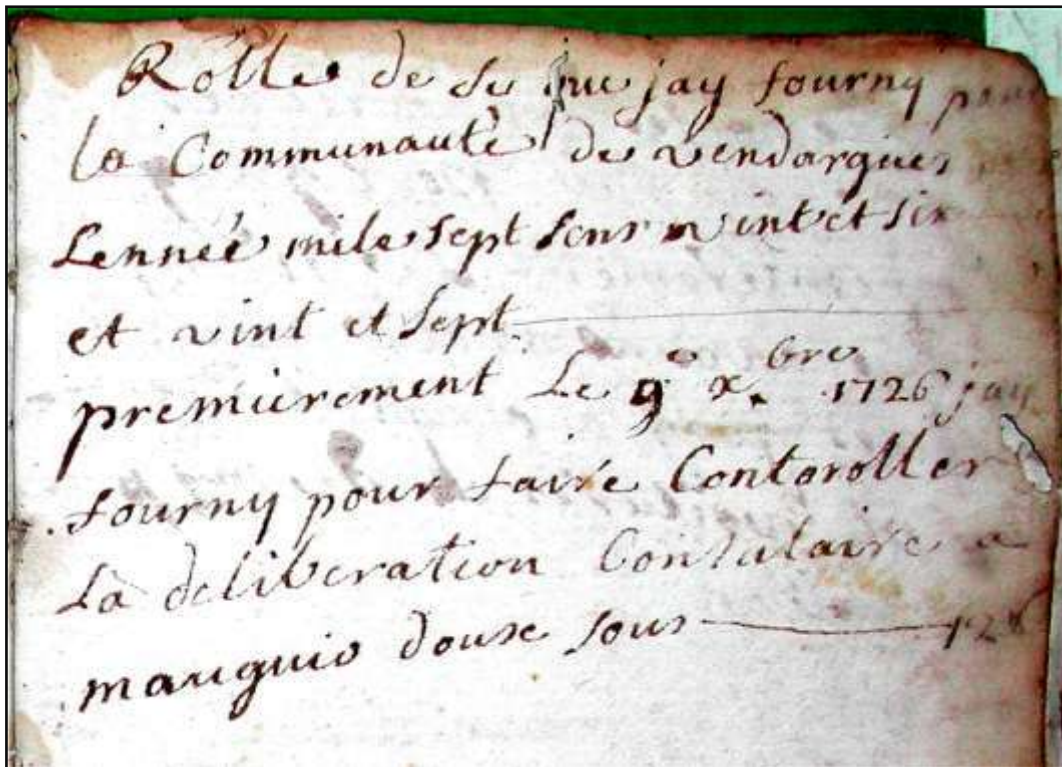 Rolle de se que jay fourny pour
la Communauté de vendargues
Lennée mile sept sens vint et six
et vint et sept
premierement Le 9e xbre 1726 jay
fourny pour faire Contoroller
La deliberation Consulaire a
mauguio douse sous 12s